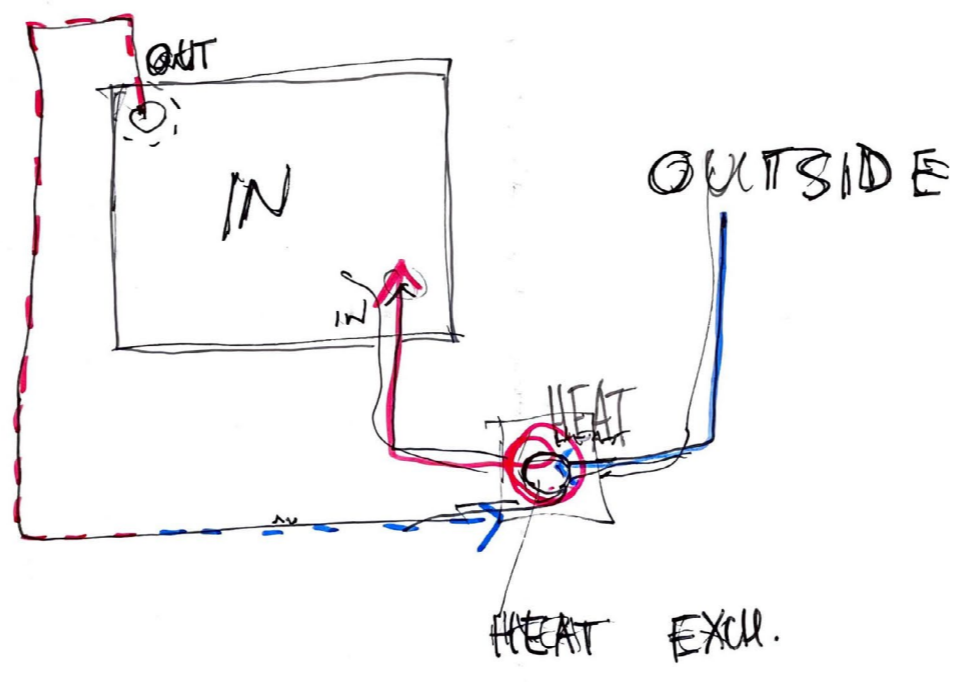 OUT
OUTSIDE
IN
IN
HEAT
HEAT EXCH.